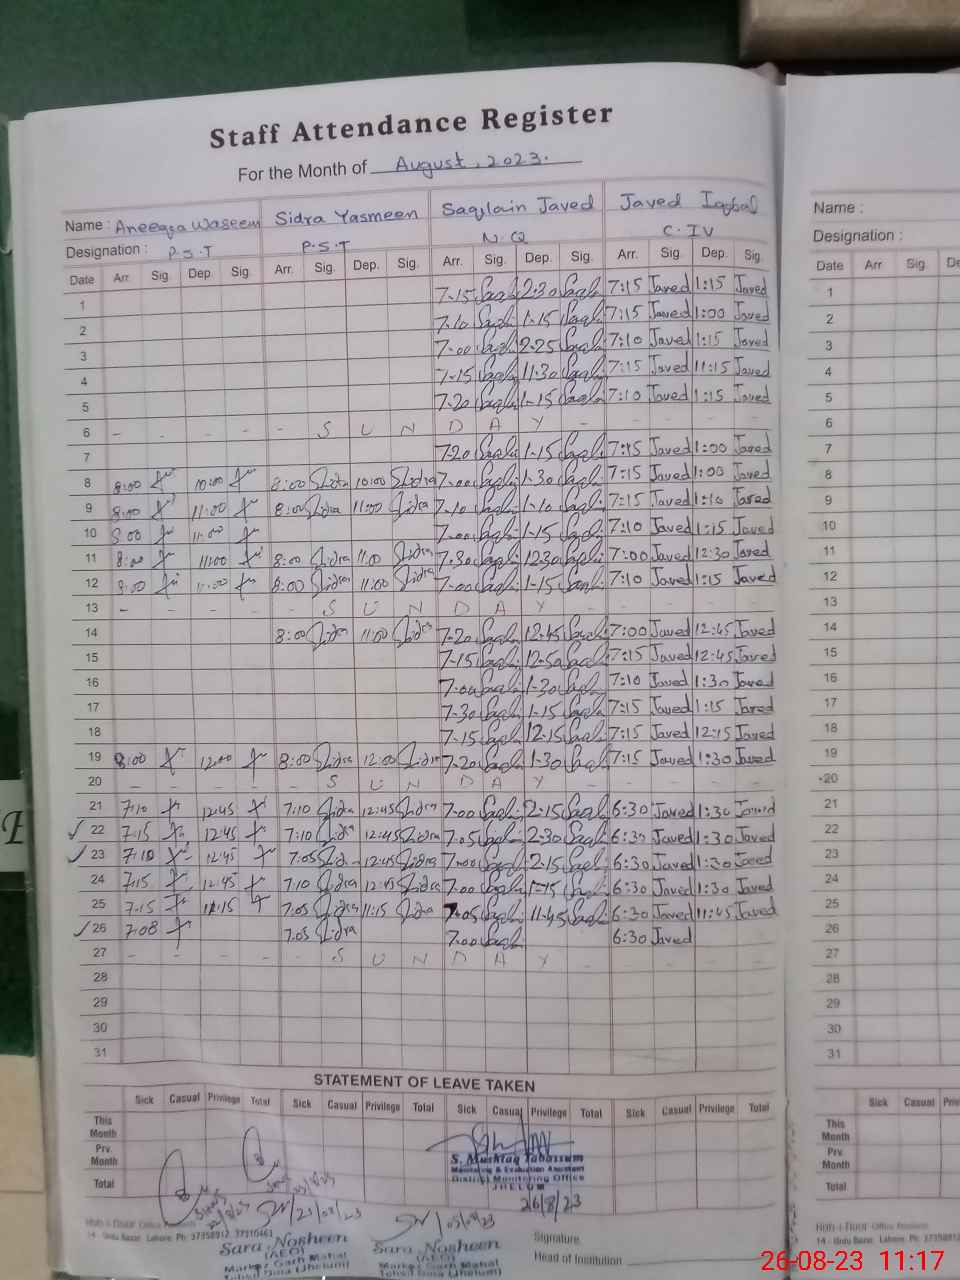 Staff Attendance Register
For the Month of August, 2023.
Name : Aneeqa Waseem Sidra Yasmeen Saqlain Javed Javed Iqbal
Designation : P.S.T P.S.T N.Q C.IV
Date Arr. Sig. Dep. Sig. Arr. Sig. Dep. Sig. Arr. Sig. Dep. Sig. Arr. Sig. Dep. Sig.
1 7-15 Saqli 2:30 Saqli 7:15 Javed 1:15 Javed
2 7-10 Saqli 1-15 Saqli 7:15 Javed 1:00 Javed
3 7-00 Saqli 2-25 Saqli 7:10 Javed 1:15 Javed
4 7-15 Saqli 11-30 Saqli 7:15 Javed 11:15 Javed
5 7-20 Saqli 1-15 Saqli 7:10 Javed 1:15 Javed
6 - - - - - S U N D A Y - - - -
7 7-20 Saqli 1-15 Saqli 7:15 Javed 1:00 Javed
8 8:00 10:00 8:00 Sidra 10:00 Sidra 7-00 Saqli 1-30 Saqli 7:15 Javed 1:00 Javed
9 8:00 11:00 8:00 Sidra 11:00 Sidra 7-10 Saqli 1-10 Saqli 7:15 Javed 1:10 Javed
10 8:00 11:00 7-00 Saqli 1-15 Saqli 7:10 Javed 1:15 Javed
11 8:00 11:00 8:00 Sidra 11:00 Sidra 7-30 Saqli 12-30 Saqli 7:00 Javed 12:30 Javed
12 8:00 11:00 8:00 Sidra 11:00 Sidra 7-00 Saqli 1-15 Saqli 7:10 Javed 1:15 Javed
13 - - - - - S U N D A Y - - - -
14 8:00 Sidra 11:00 Sidra 7-20 Saqli 12-45 Saqli 7:00 Javed 12:45 Javed
15 7-15 Saqli 12-50 Saqli 7:15 Javed 12:45 Javed
16 7-00 Saqli 1-30 Saqli 7:10 Javed 1:30 Javed
17 7-30 Saqli 1-15 Saqli 7:15 Javed 1:15 Javed
18 7-15 Saqli 12-15 Saqli 7:15 Javed 12:15 Javed
19 8:00 12:00 8:00 Sidra 12:00 Sidra 7-20 Saqli 1-30 Saqli 7:15 Javed 1:30 Javed
20 - - - - - S U N D A Y - - - -
21 7:10 12:45 7:10 Sidra 12:45 Sidra 7-00 Saqli 2-15 Saqli 6:30 Javed 1:30 Javed
22 7:15 12:45 7:10 Sidra 12:45 Sidra 7-05 Saqli 2-30 Saqli 6:30 Javed 1:30 Javed
23 7:10 12:45 7:05 Sidra 12:45 Sidra 7-00 Saqli 2-15 Saqli 6:30 Javed 1:30 Javed
24 7:15 12:45 7:10 Sidra 12:45 Sidra 7-00 Saqli 1-15 Saqli 6:30 Javed 1:30 Javed
25 7-15 11:15 7:05 Sidra 11:15 Sidra 7-05 Saqli 11-45 Saqli 6:30 Javed 11:45 Javed
26 7:08 7:05 Sidra 7-00 Saqli 6:30 Javed
27 - - - - - S U N D A Y - - - -
28
29
30
31
STATEMENT OF LEAVE TAKEN
Sick Casual Privilege Total Sick Casual Privilege Total Sick Casual Privilege Total Sick Casual Privilege Total
This Month
Prv. Month
Total
S. Mushtaq Tabassum
Monitoring & Evaluation Assistant
District Monitoring Office
JHELUM
26/8/23
23/08/23
Sara Nosheen
(AEO)
Markaz Garh Mahal
Tehsil Dina (Jhelum)
Sara Nosheen
(AEO)
Markaz Garh Mahal
Tehsil Dina (Jhelum)
14 - Urdu Bazar, Lahore. Ph: 37358912, 37310461
Signature
Head of Institution
Name :
Designation :
Date Arr Sig. De
1
2
3
4
5
6
7
8
9
10
11
12
13
14
15
16
17
18
19
20
21
22
23
24
25
26
27
28
29
30
31
Sick Casual Priv
This Month
Prv. Month
Total
14 - Urdu Bazar, Lahore. Ph: 3735
26-08-23 11:17